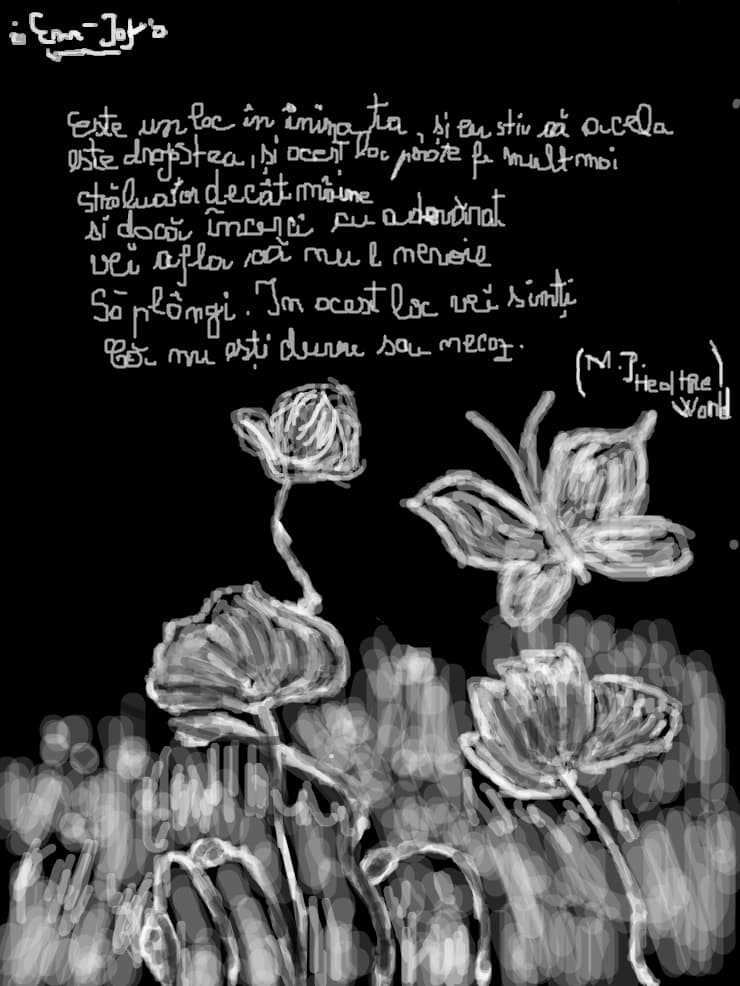 Este un loc în inima ta, și eu știu că acela
este dragostea, și acest loc poate fi mult mai
strălucitor decât mâine
si dacă încerci cu adevărat
vei afla că nu e nevoie
Să plângi. In acest loc vei simți
Că nu ești durere sau necaz.
(M.J. Heal the
World)